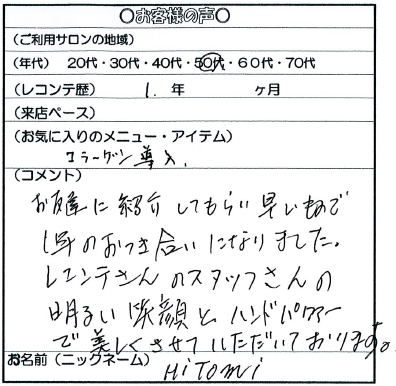 ○お客様の声○
(ご利用サロンの地域)
(年代) 20代・30代・40代・50代・60代・70代
(レコンテ歴) 1. 年 ヶ月
(来店ペース)
(お気に入りのメニュー・アイテム)
コラーゲン導入.
(コメント)
お友達に紹介してもらい早いもので
1年のおつき合いになりました。
レコンテさんのスタッフさんの
明るい笑顔とハンドパワー
で美しくさせていただいております。
お名前(ニックネーム)
HiTomi